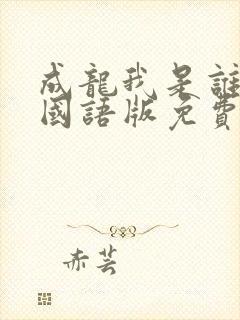 成龍我是誰
國語版免費
赤芸